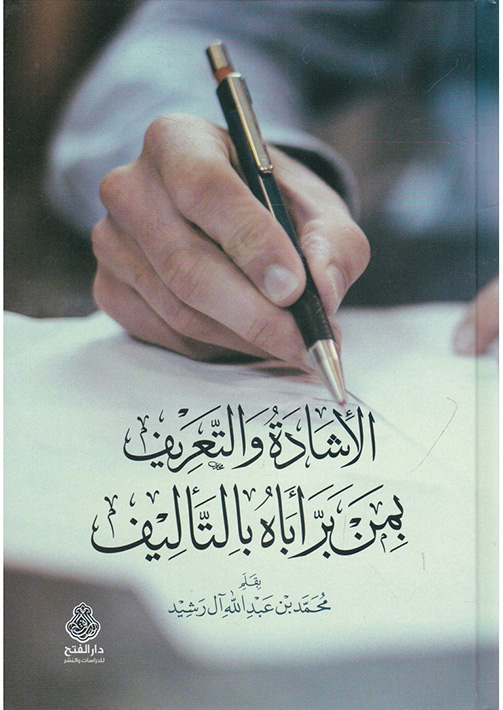 الأشادة والتعريف
بمن برأباه بالتأليف
بقلم
محمد بن عبد الله آل رشيد
دار الفتح
للدراسات والنشر